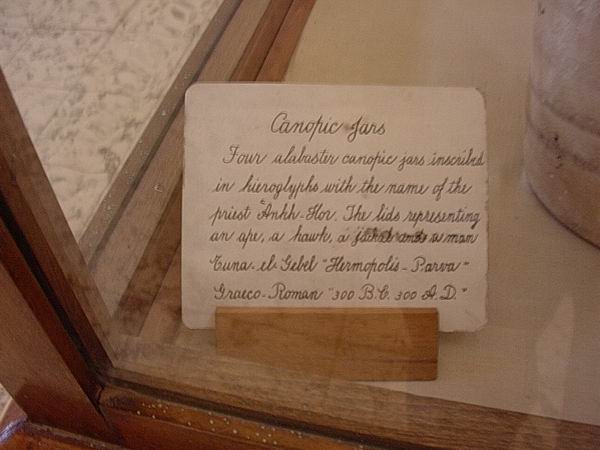 Canopic Jars
Four alabaster canopic jars inscribed
in hieroglyphs with the name of the
priest "Ankh-Hor. The lids representing
an ape, a hawk, a jackal and a man
Tuna-el-Gebel "Hermopolis-Parva"
Graeco-Roman "300 B.C. 300 A.D."